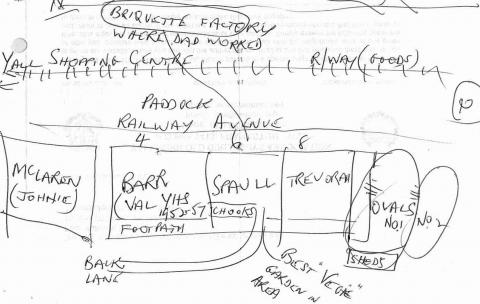 N
BRIQUETTE FACTORY
WHERE DAD WORKED
YALL SHOPPING CENTRE R/WAY (GOODS)
PADDOCK
RAILWAY AVENUE
4 6 8
MCLAREN
(JOHNIE)
BARR
VAL YHS
1952-57
FOOTPATH
SPAULL
CHOOKS
OVALS
NO.1
NO.2
SHEDS
BACK
LANE
BEST "VEGIE"
GARDEN IN
AREA